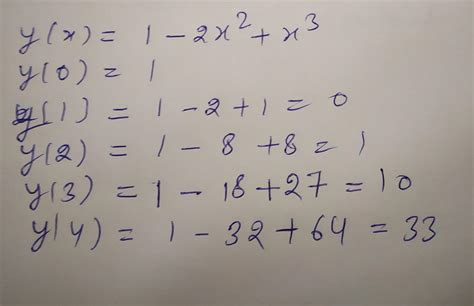 y(x) = 1 - 2x² + x³
y(0) = 1
y(1) = 1 - 2 + 1 = 0
y(2) = 1 - 8 + 8 = 1
y(3) = 1 - 18 + 27 = 10
y(4) = 1 - 32 + 64 = 33